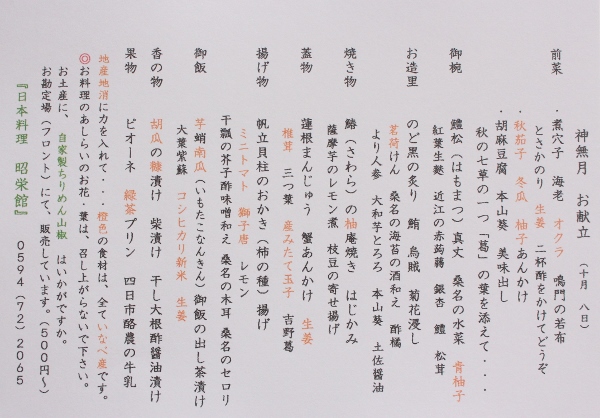 神無月　お献立　（十月　八日）
前菜　・煮穴子　海老　オクラ　鳴門の若布
ときかのり　生姜　二杯酢をかけてどうぞ
・秋茄子　冬瓜　柚子あんかけ
・胡麻豆腐　本山葵　美味出し
秋の七草の一つ「葛」の葉を添えて・・・
御椀　鱧松（はもまつ）真丈　桑名の水菜　青柚子
紅葉生麩　近江の赤蒟蒻　銀杏　鱧　松茸
お造里　のど黒の炙り　鮪　烏賊　菊花浸し
茗荷けん　桑名の海苔の酒和え　酢橘
より人参　大和芋とろろ　本山葵　土佐醤油
焼き物　鰆（さわら）の柚庵焼き　はじかみ
薩摩芋のレモン煮　枝豆の寄せ揚げ
蓋物　蓮根まんじゅう　蟹あんかけ　生姜
椎茸　三つ葉　産みたて玉子　吉野葛
揚げ物　帆立貝柱のおかき（柿の種）揚げ
ミニトマト　獅子唐　レモン
干瓢の芥子酢味噌和え　桑名の木耳　桑名のセロリ
御飯　芋蛸南瓜（いもたこなんきん）御飯の出し茶漬け
大葉紫蘇　コシヒカリ新米　生姜
香の物　胡瓜の糠漬け　柴漬け　干し大根酢醤油漬け
果物　ピオーネ　緑茶プリン　四日市酪農の牛乳
地産地消に力を入れて・・・橙色の食材は、全ていなべ産です。
◎お料理のあしらいのお花　葉は、召し上がらないで下さい。
お土産に、　自家製ちりめん山椒　はいかがですか。
お勘定場（フロント）にて、販売しています。（500円～）
『日本料理　昭栄館』　0594（72）2065